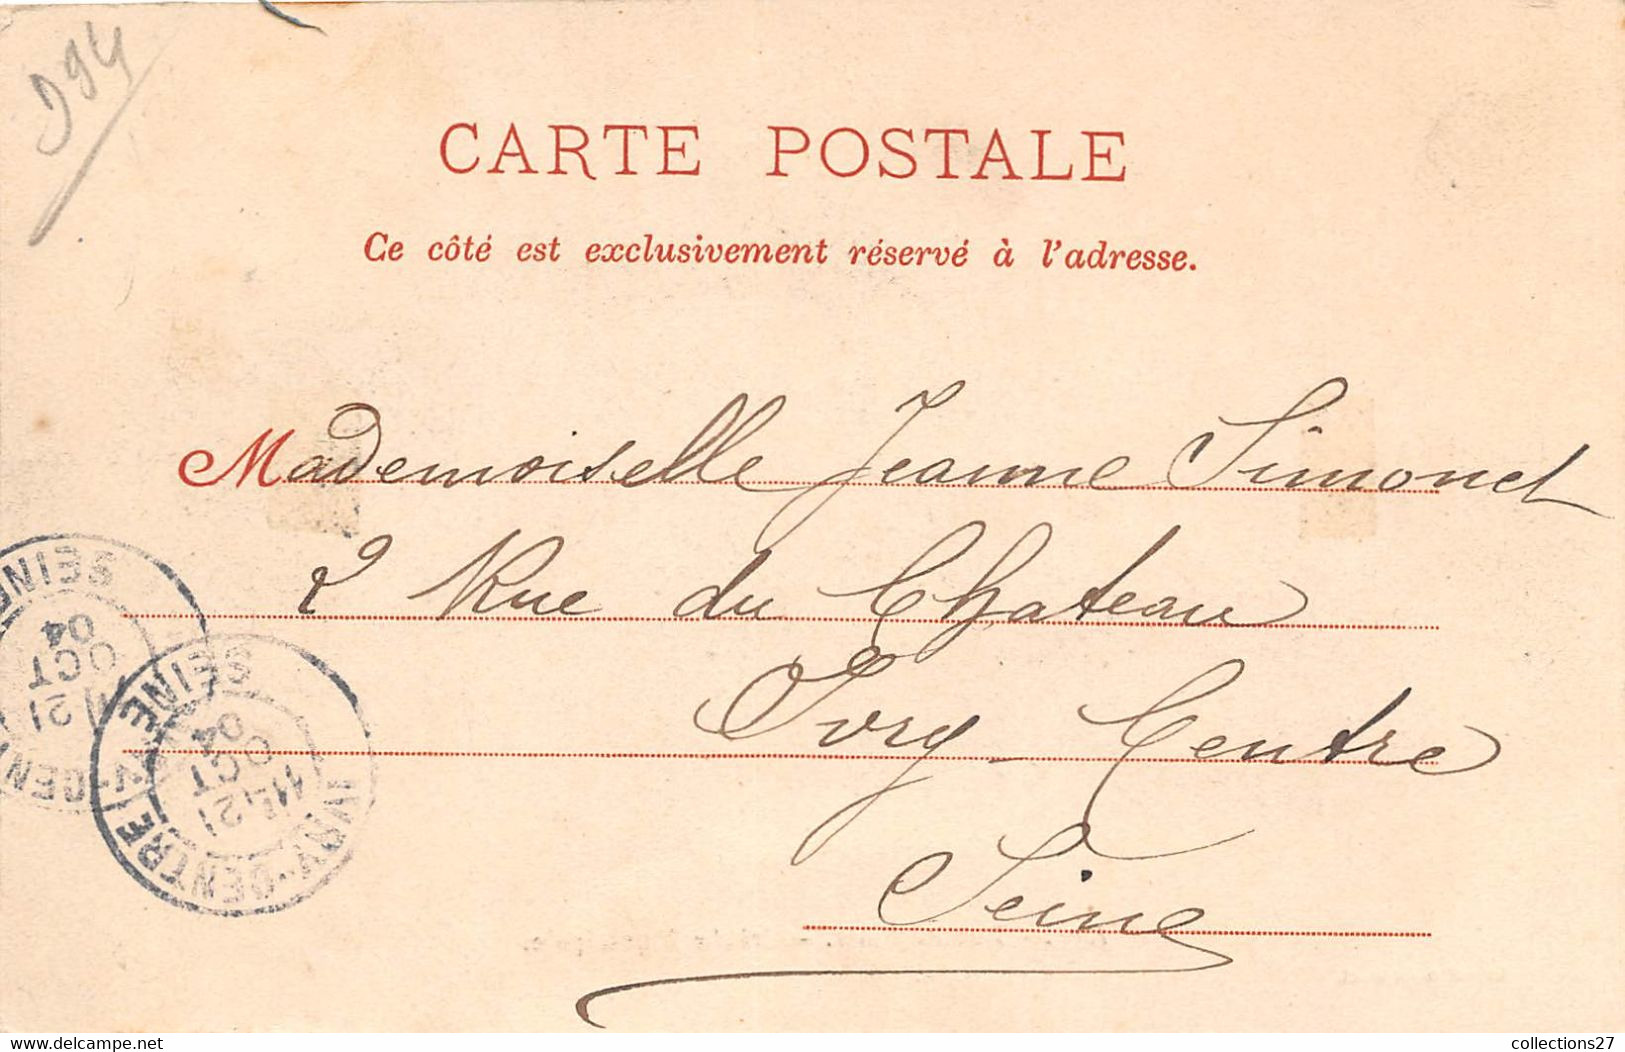 D94
CARTE POSTALE
Ce côté est exclusivement réservé à l'adresse.
Mademoiselle Jeanne Simonet
2 Rue du Chateau
Ivry Centre
Seine
SEINE
21
OCT
04
IVRY-CENTRE SEINE
11E 21
OCT
04
collections27